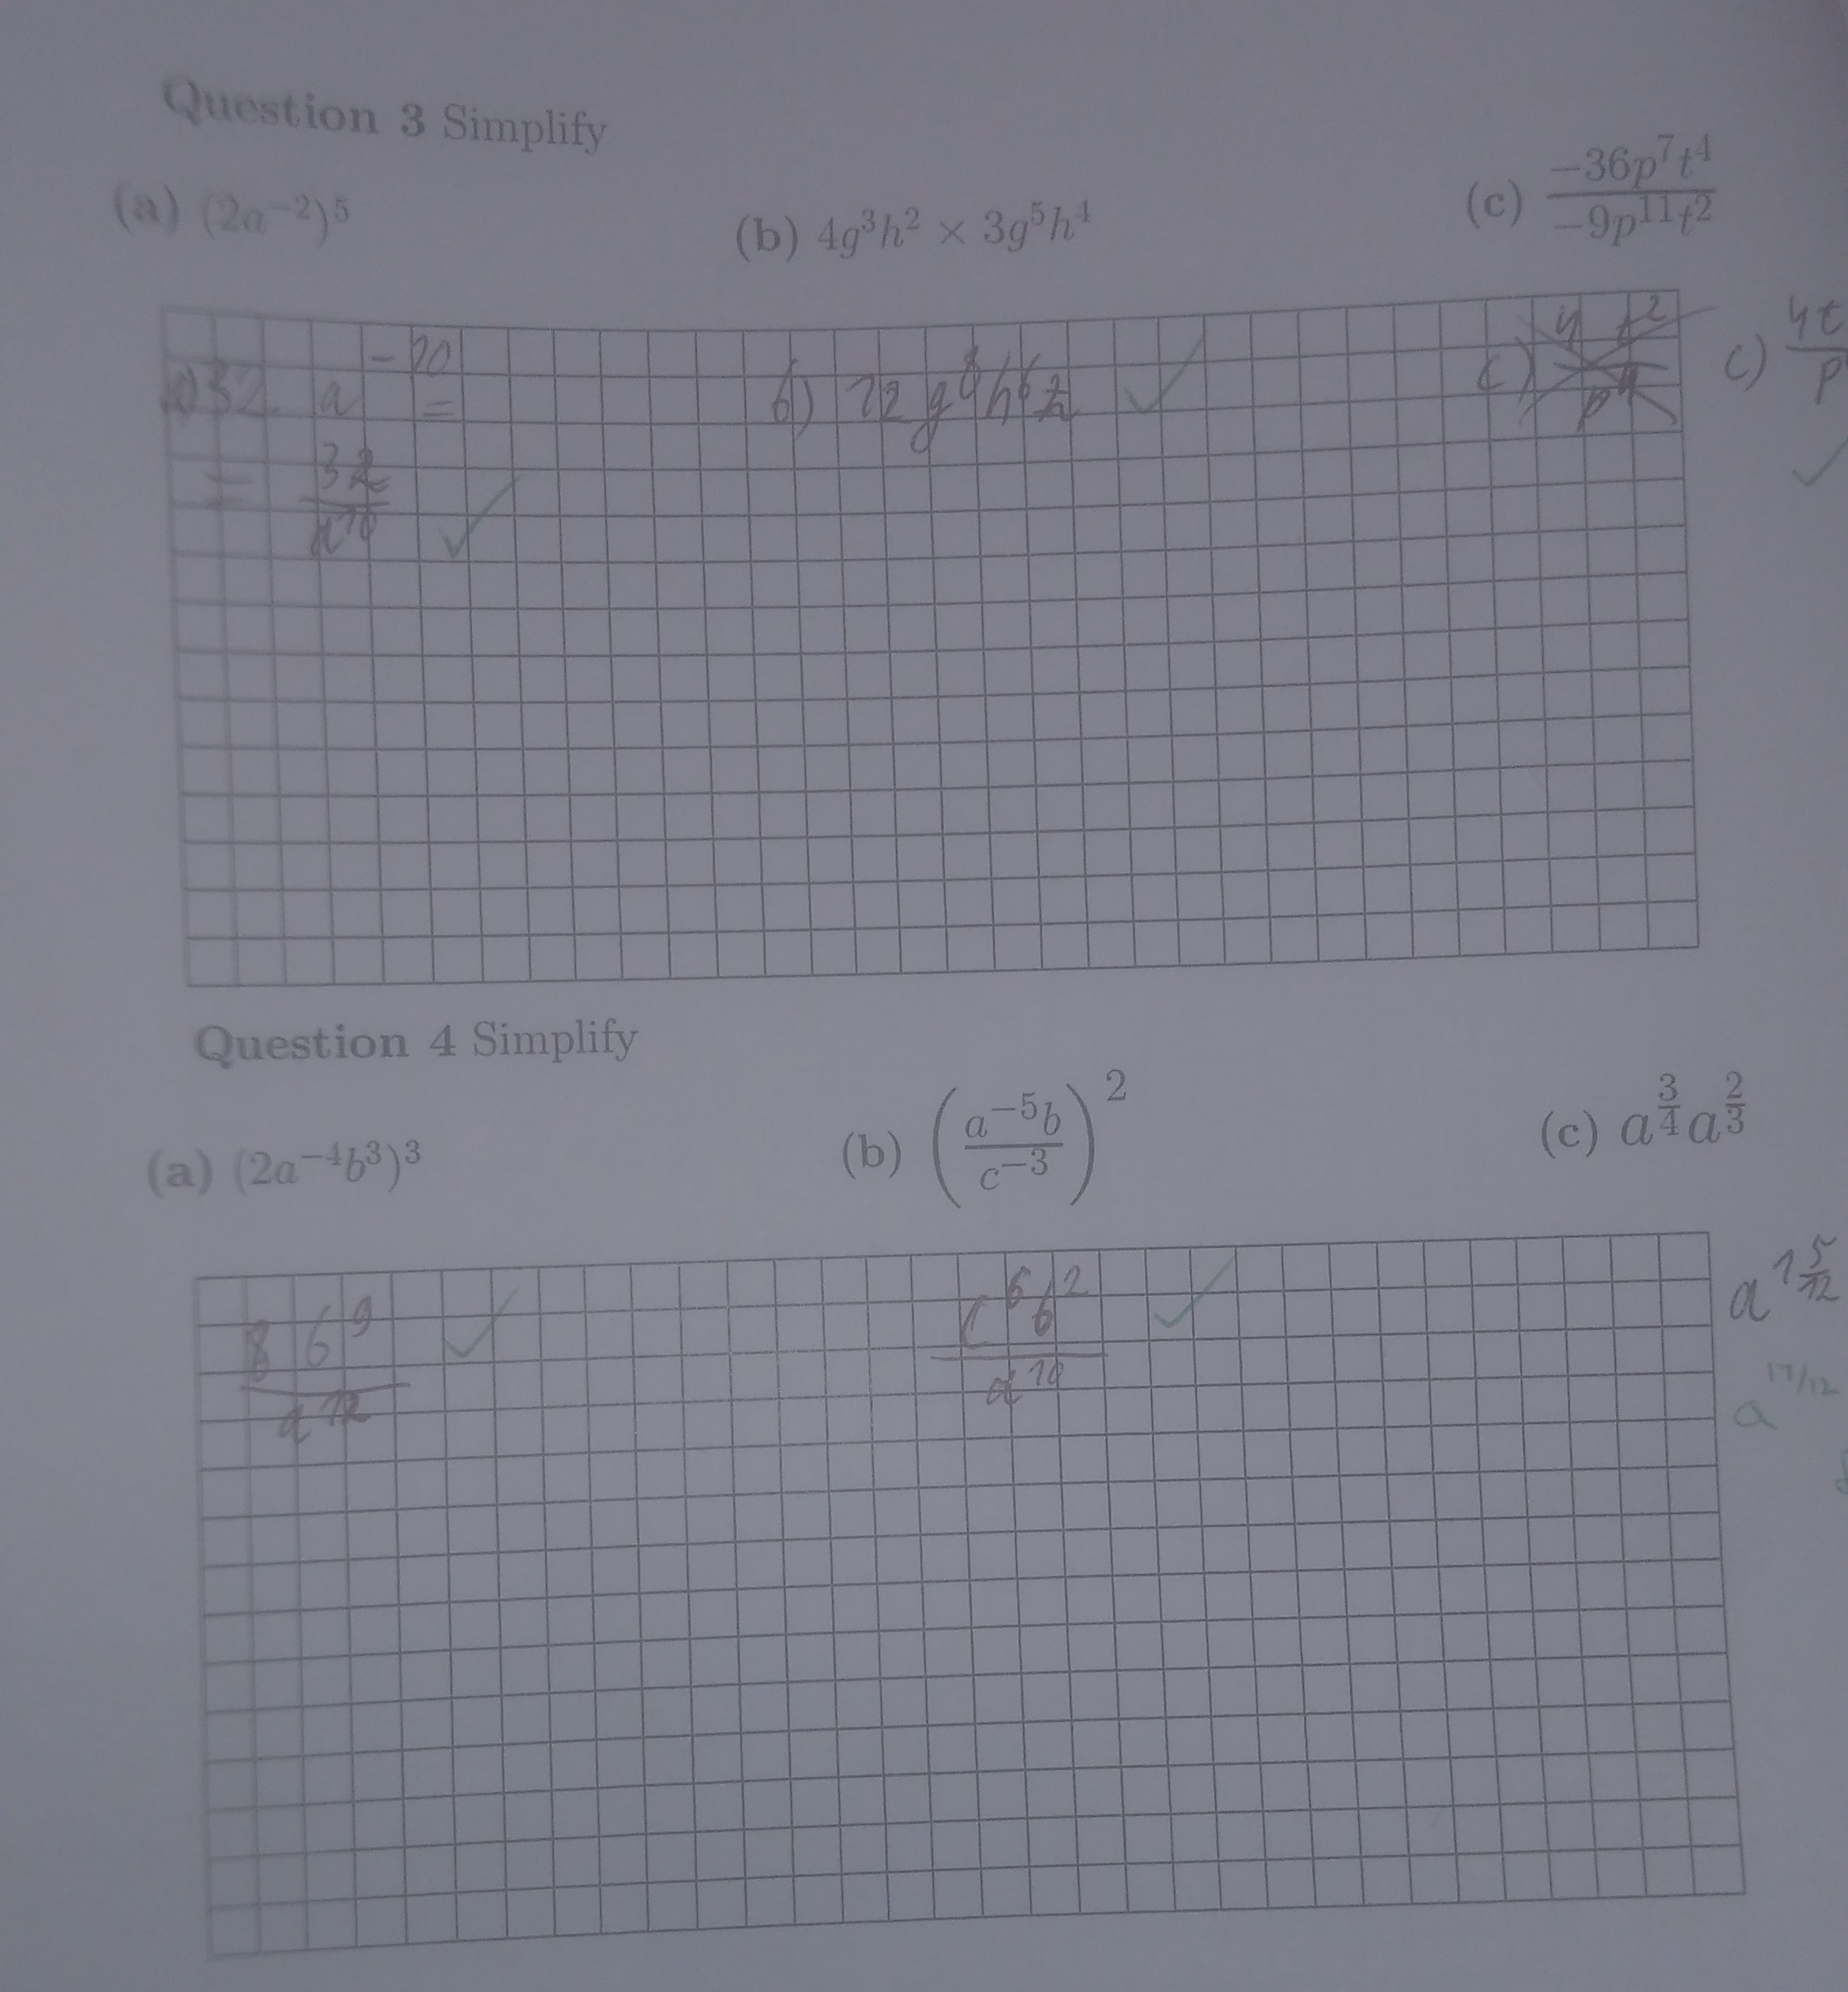 Question 3 Simplify
(a) (2a⁻²)⁵
(b) 4g³h² × 3g⁵h⁴
(c) −36p⁷t⁴ / −9p¹¹t²
a) 32 a⁻¹⁰ =
= 32 / a¹⁰
b) 12 g⁸ h⁶
c) 4 t² / p⁴
c) 4t / p
Question 4 Simplify
(a) (2a⁻⁴b³)³
(b) (a⁻⁵b / c⁻³)²
(c) a^(3/4) a^(2/3)
8 b⁹ / a¹²
c⁶ b² / a¹⁰
a^(1 5/12)
a^(17/12)